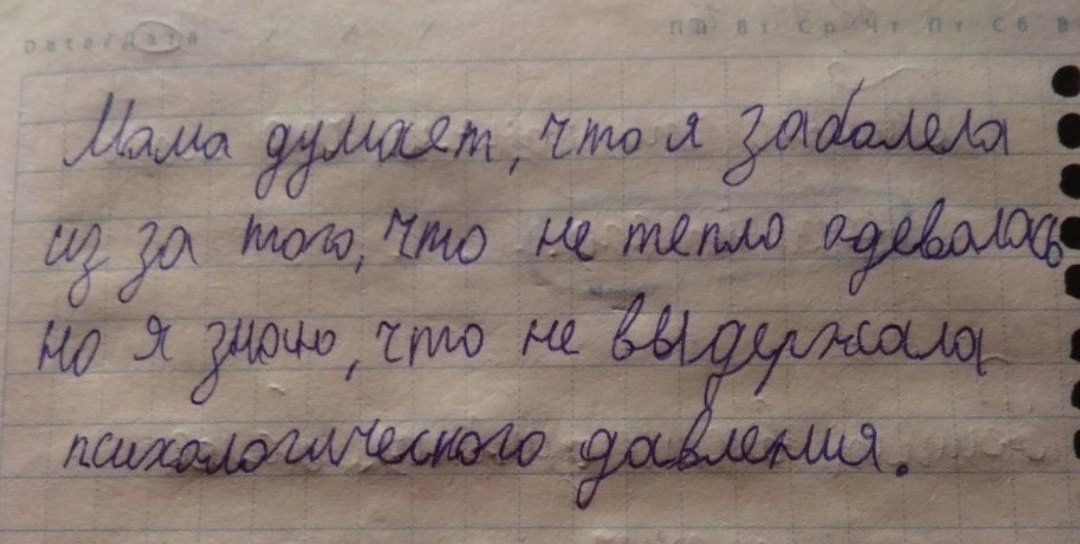 Date/Дата / / / Пн Вт Ср Чт Пт Сб В
Мама думает, что я заболела
из за того, что не тепло одевалась
но я знаю, что не выдержала
психологического давления.